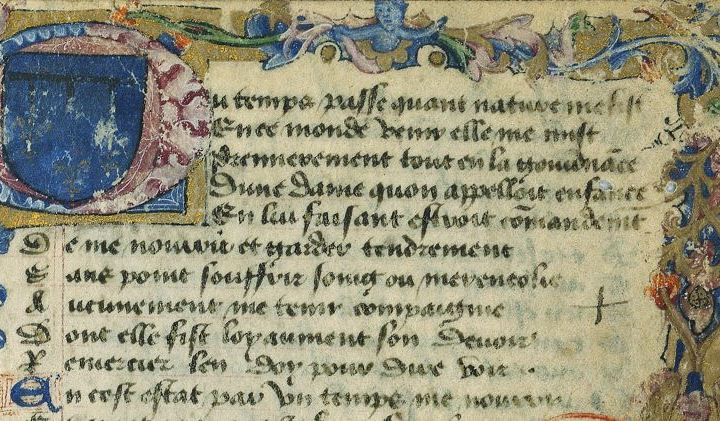 Ou temps passe quant nature me fist
En ce monde venir elle me mist
Premierement tout en la gouvnāce
Dune dame quon appelloit enfance
En lui faisant estroit cōmandemt
De me nourrir et garder tendrement
Sans point souffrir soing ou merencolie
Aucunement me tenir compaignie
Dont elle fist loyaument son devoir
Remercier len doy pour dire voir
En cest estat par un temps me nourry